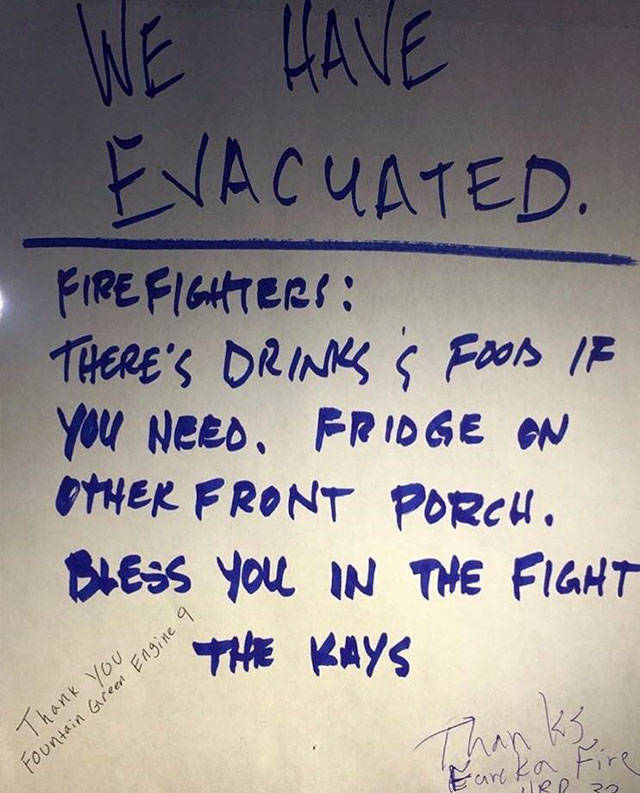 WE HAVE
EVACUATED.
FIREFIGHTERS:
THERE'S DRINKS & FOOD IF
YOU NEED. FRIDGE ON
OTHER FRONT PORCH.
BLESS YOU IN THE FIGHT
THE KAYS
Thank You
Fountain Green Engine 9
Thanks,
Eureka Fire